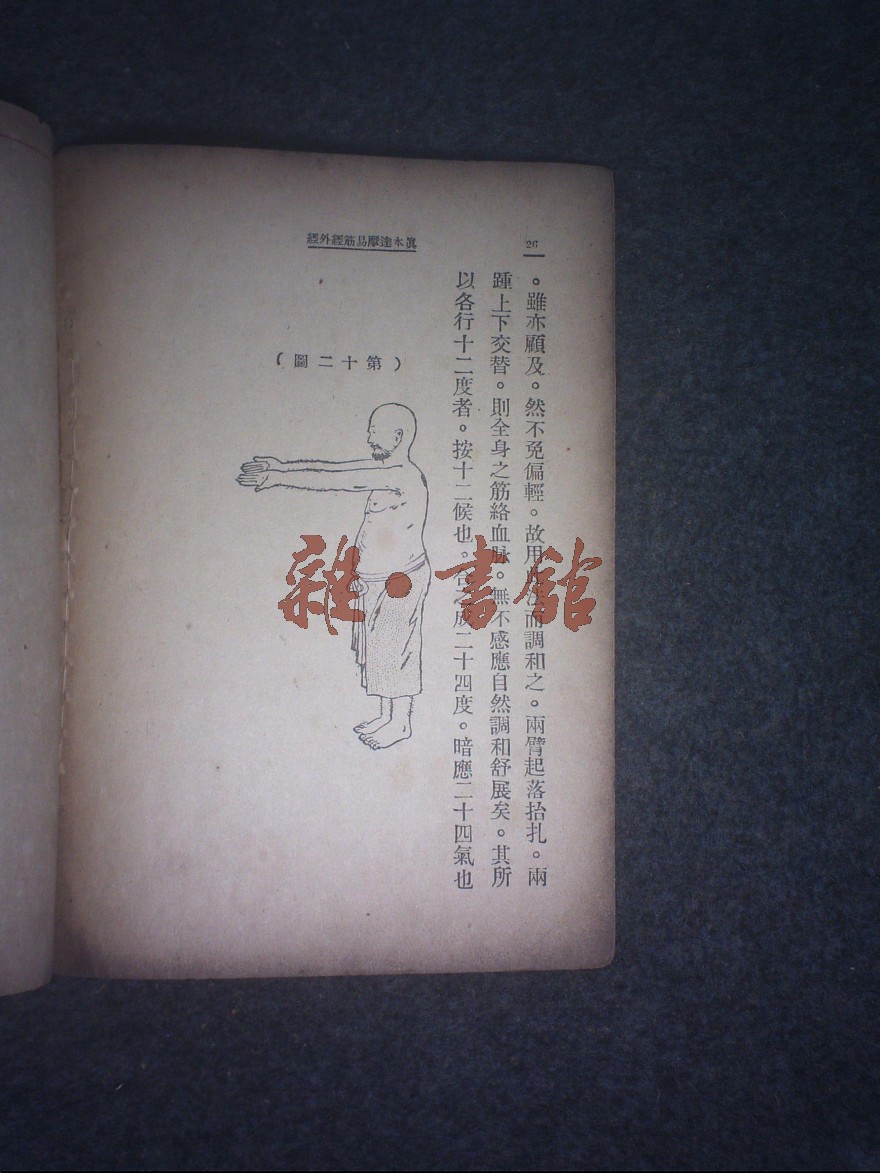 26
眞本達摩易筋經外經
。雖亦顧及。然不免偏輕。故用此法而調和之。兩臂起落抬扎。兩
踵上下交替。則全身之筋絡血脉。無不感應自然調和舒展矣。其所
以各行十二度者。按十二候也。合之成二十四度。暗應二十四氣也
（第十二圖）
雜·書館